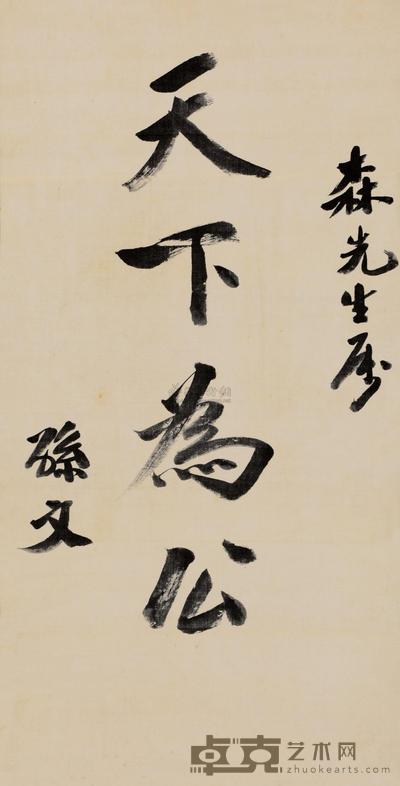 森先生属
天下為公
孫文
卓克艺术网
zhuokearts.com